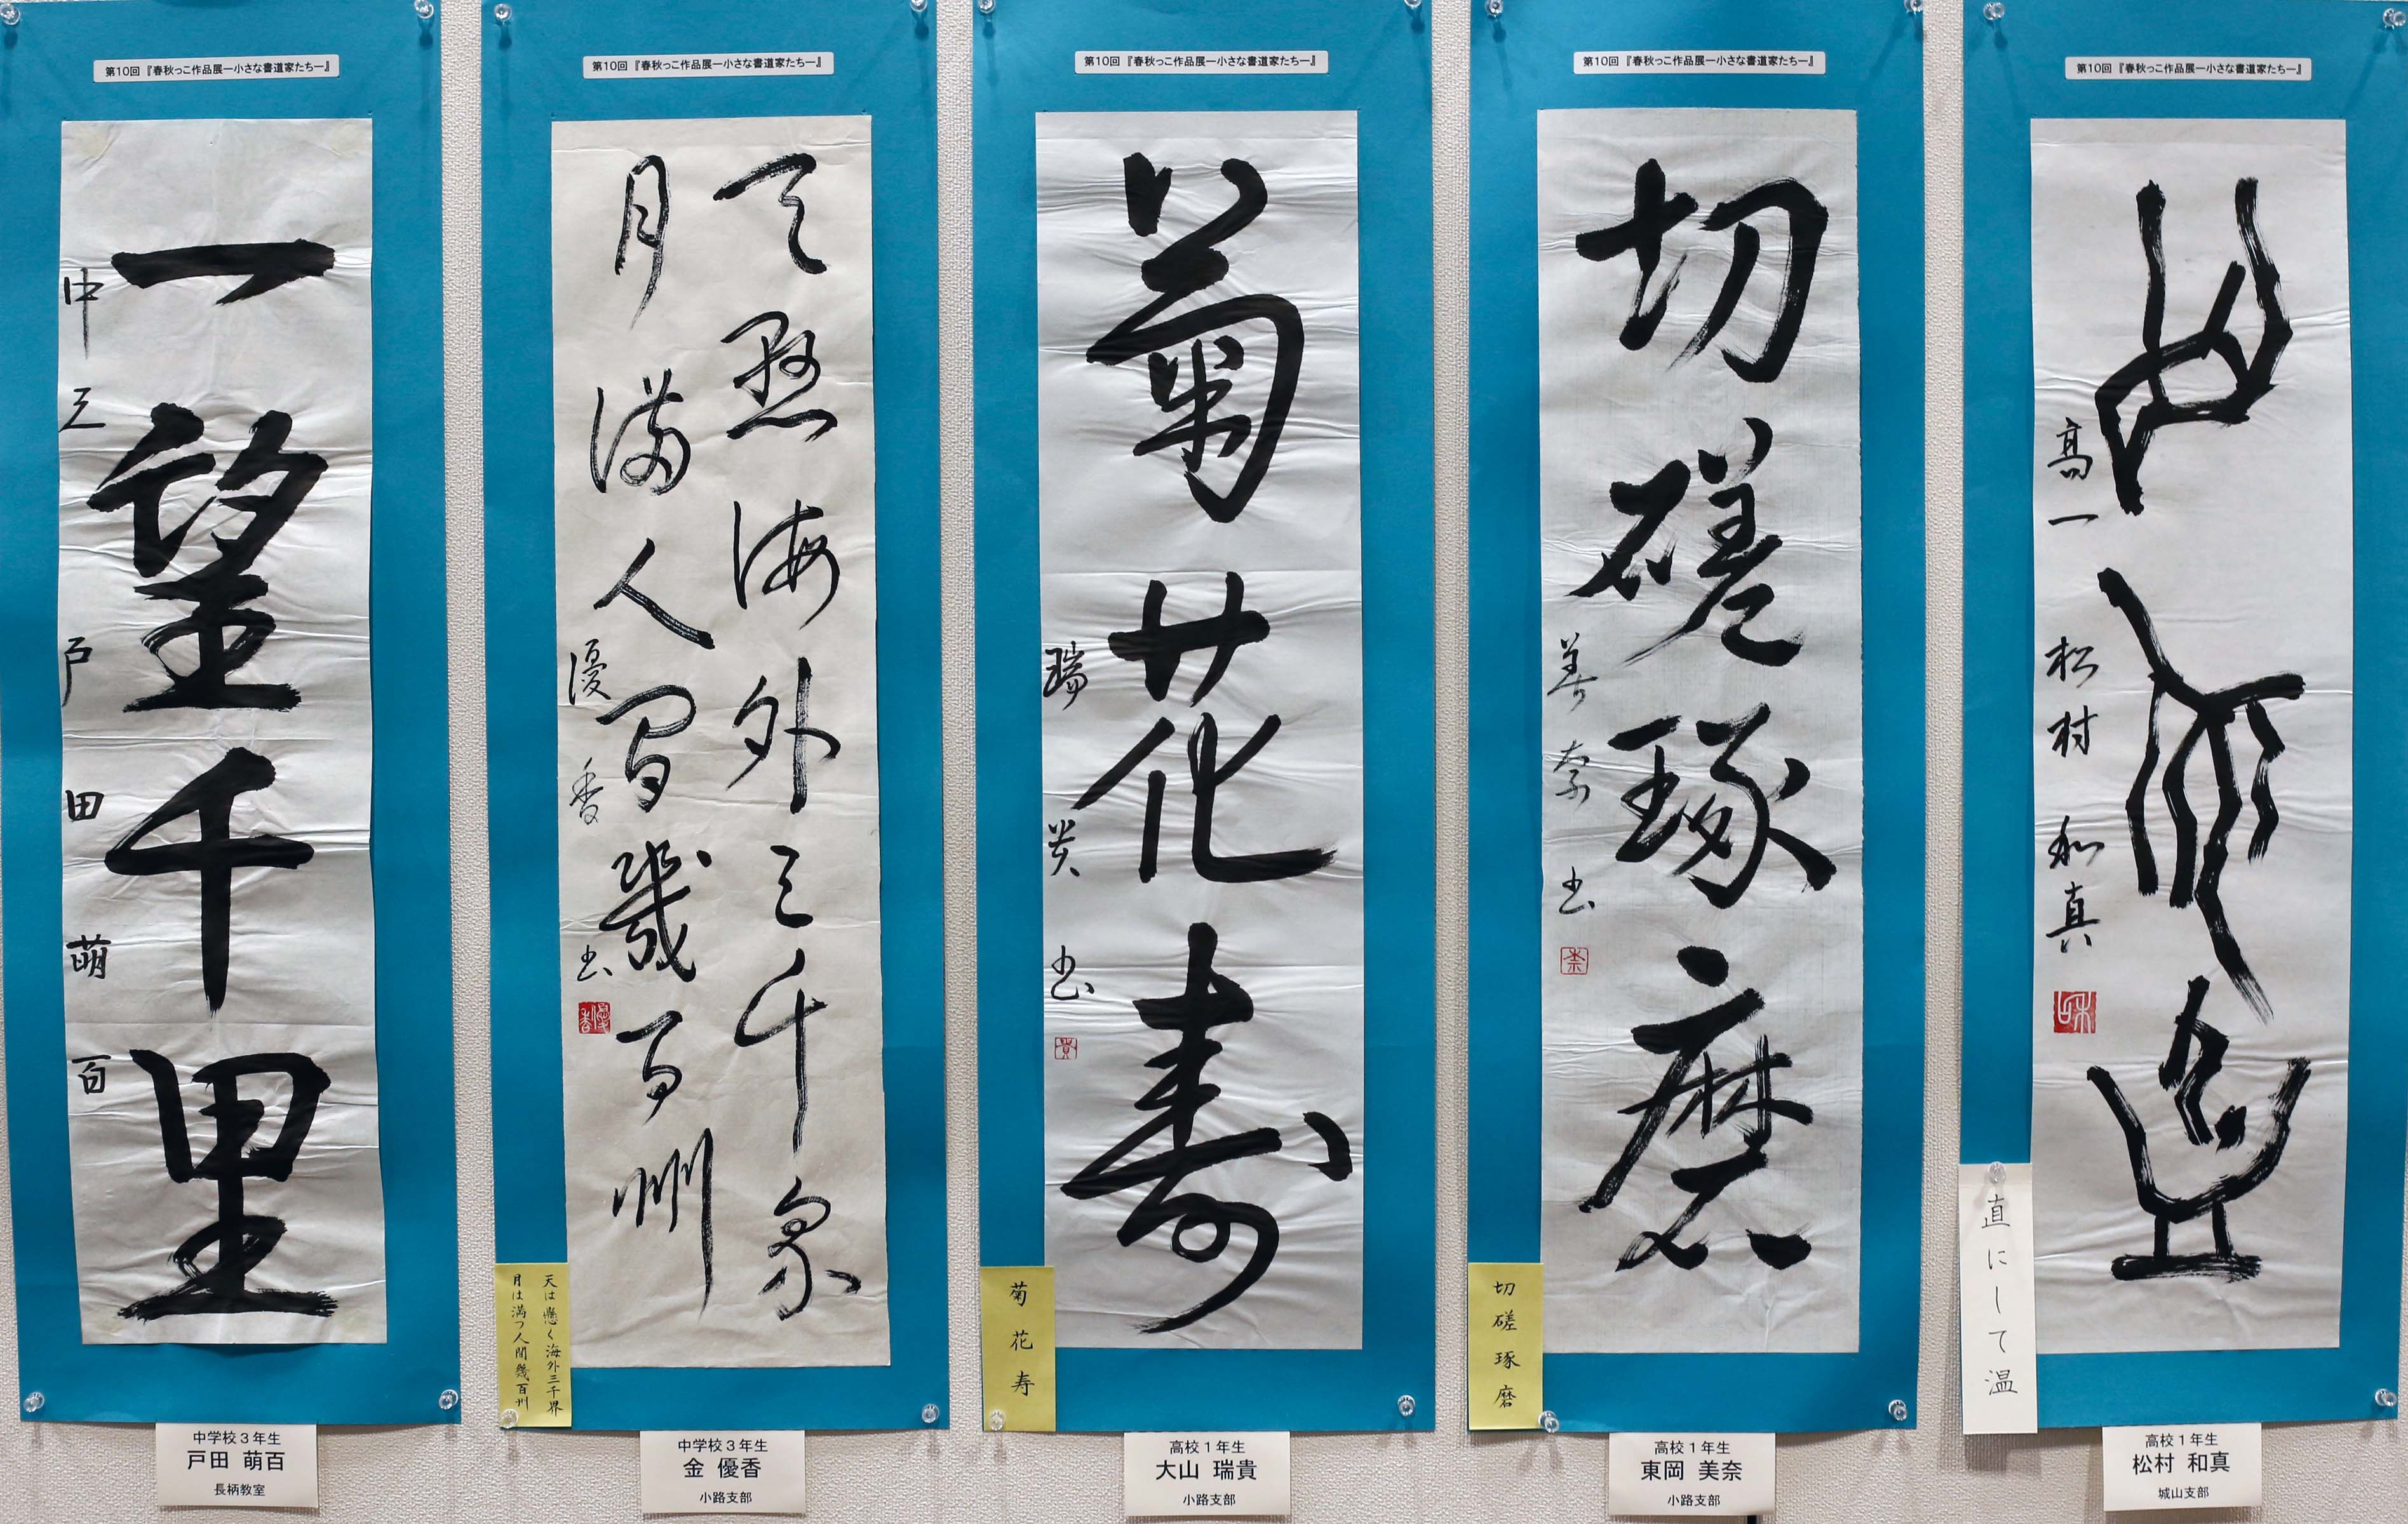 第10回『春秋っこ作品展ー小さな書道家たちー』
一望千里
中三 戸田萌百
中学校3年生
戸田 萌百
長柄教室
第10回『春秋っこ作品展ー小さな書道家たちー』
天懸海外三千界
月満人間幾百州
優香書
天は懸く海外三千界
月は満つ人間幾百州
中学校3年生
金 優香
小路支部
第10回『春秋っこ作品展ー小さな書道家たちー』
菊花寿
瑞貴書
菊花寿
高校1年生
大山 瑞貴
小路支部
第10回『春秋っこ作品展ー小さな書道家たちー』
切磋琢磨
美奈書
切磋琢磨
高校1年生
東岡 美奈
小路支部
第10回『春秋っこ作品展ー小さな書道家たちー』
高一 松村和真
直にして温
高校1年生
松村 和真
城山支部